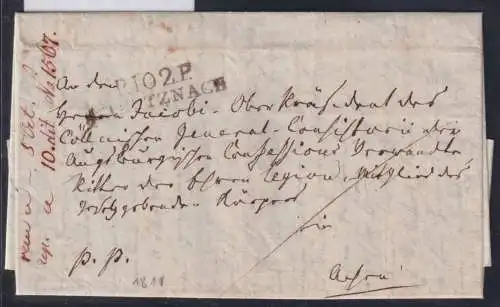 P.102.P.
CREUTZNACH
An den
Herrn Jacobi. Ober Präsident des
Cöllnischen General-Consistorii der
Augsburgischen Confessions Verwandte
Ritter der Ehren Legion, Mitglied des
Gesetzgebenden Körpers
in
Achen
p. p.
1811
5 Oct.
10. dit No 1507.